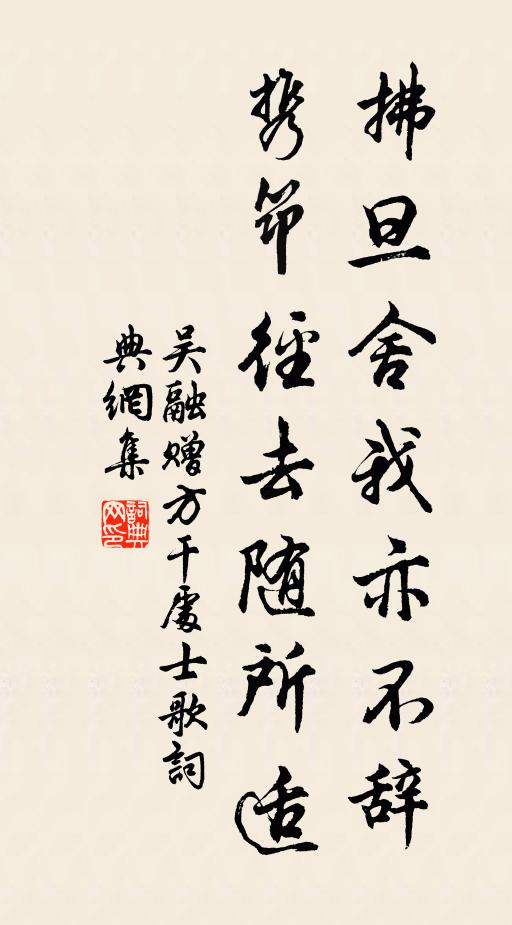 拂旦舍我亦不辞
携笻径去随所适
吴融赠方干處士歌詞
典網集
詞典网印